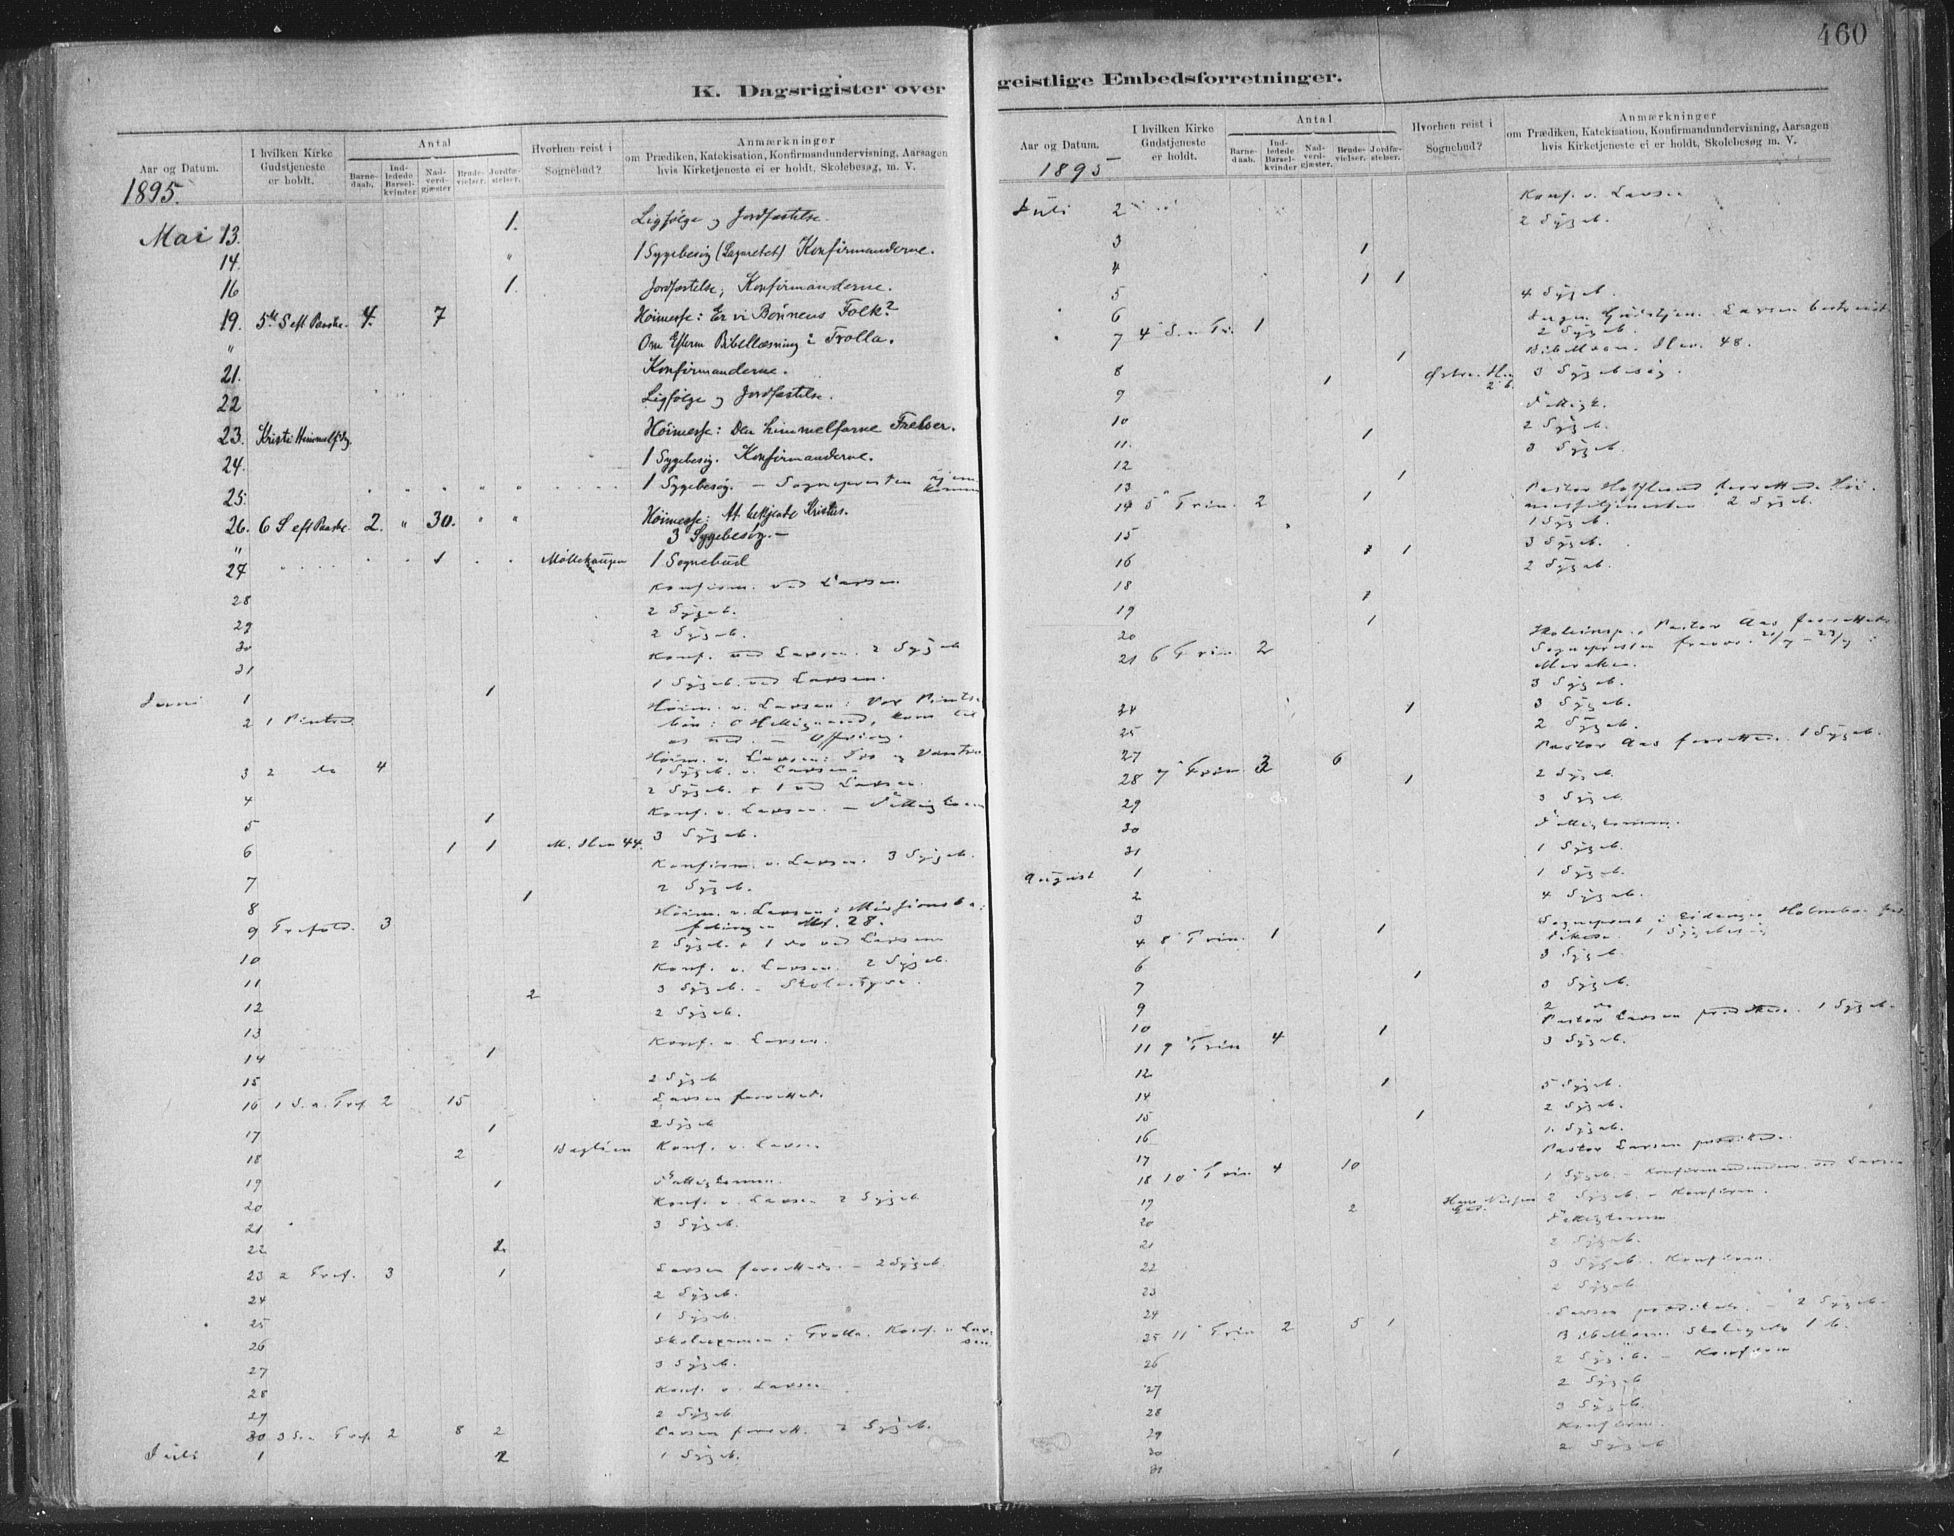 460
K. Dagsrigister over
Aar og Datum.
I hvilken Kirke Gudstjeneste er holdt.
Antal
Barne-daab.
Ind-ledede Barsel-kvinder
Nad-verd-gjæster
Brude-vielser.
Jordfæ-stelser.
Hvorhen reist i Sognebud?
Anmærkninger
om Prædiken, Katekisation, Konfirmandundervisning, Aarsagen
hvis Kirketjeneste ei er holdt, Skolebesøg, m. V.
1895.
Mai 13. 1. Ligfølge og Jordfæstelse.
14. " 1 Sygebesøg (Lazarettet) Konfirmanderne.
16 1. Jordfæstelse, Konfirmanderne.
19. 5te S eft Paaske. 4. 7 Høimesse: Er vi Bønnens Folk?
" Om Efterm Bibellæsning i Trolla.
21. Konfirmanderne.
22 Ligfølge og Jordfæstelse.
23. Kristi Himmelfdg. Høimesse: Den himmelfarne Frelser.
24. 1 Sygebesøg. Konfirmanderne.
25. 1 Sygebesøg. — Sognepresten
26. 6 S eft Paaske 2. " 30. " " Høimesse: At bekjende Kristus.
" 3 Sygebesøg. —
27 1 Møllebakken 1 Sognebud
28 Konfirm. ved Larsen
29 2 Sygeb.
30 2 Sygeb.
31 Konf. ved Larsen. 2 Sygeb
Juni 1 1 1 Sygeb. ved Larsen.
2 1 Pintsed. Høim. v. Larsen: Vor Pintse-
bøn: O Helligaand, kom til
os ned. — Offring.
3 2 do 4 Høim. v. Larsen: Tro og Vantro
1 Sygeb. v. Larsen.
4 2 Sygeb. + 1 ved Larsen.
5 1 Konf. v. Larsen. — Fattigkomm
6 1 1 M. Ilen 44. 3 Sygeb.
7 Konfirm. v. Larsen. 3 Sygeb.
8 1 2 Sygeb.
9 Trefold. 3 Høim. v. Larsen: Missionsbe-
falingen Mt. 28.
10 2 Sygeb. + 1 do ved Larsen
11 Konf. v. Larsen. 2 Sygeb.
12 2 3 Sygeb. — Skolestyre.
13 2 Sygeb.
14 1 Konf. v. Larsen.
15 2 Sygeb
16 1 S. a. Tref. 2 15 Larsen forrettede.
17 1 2 Sygeb
18 2 Konf. v. Larsen
19 1 Fattigkomm.
20 Konf. v. Larsen 2 Sygeb
21 3 Sygeb.
22 2
23 2 Tref. 3 1 Larsen forrettede. — 2 Sygeb.
24 2 Sygeb.
25 1 Sygeb.
26 Skoleexamen i Trolla. Konf. v. Lar-
sen
27 3 Sygeb.
28 Konf. v. Larsen
29 2 Sygeb
30 3 S a Tref. 2 8 2 Larsen forrett. 2 Sygeb.
Juli 1 2 1 Sygeb.
geistlige Embedsforretninger.
Aar og Datum.
I hvilken Kirke Gudstjeneste er holdt.
Antal
Barne-daab.
Ind-ledede Barsel-kvinder
Nad-verd-gjæster.
Brude-vielser.
Jordfæ-stelser.
Hvorhen reist i Sognebud?
Anmærkninger
om Prædiken, Katekisation, Konfirmandundervisning, Aarsagen
hvis Kirketjeneste ei er holdt, Skolebesøg m. V.
1895
Juli 2 Konf. v. Larsen
2 Sygeb.
3 1
4 1 1
5 4 Sygeb.
6
7 4 S. e. Tr. 1 2 Sygeb.
Ilen. 48.
8 1 3 Sygebesøg.
9 1
10 2 Sygeb.
11. 1 3 Sygeb.
12
13 1 Pastor
14 5 Trin. 2 1 messetjenesten 2 Sygeb.
15 1 Sygeb.
16 1 1 3 Sygeb.
18 2 Sygeb.
19 1
20 1
21 6 Trin. 2 Skoleinsp. Pastor Aas forrettede
Sognepresten 21/7 – 23/7 i
Meraker.
3 Sygeb.
24 1 3 Sygeb.
25 2 Sygeb.
27 Pastor Aas forrettede. 1 Sygeb.
28 7 Trin 3 6 1 2 Sygeb.
29 3 Sygeb.
30 Fattigkomm.
31 1 Sygeb.
August 1 1 Sygeb.
2 4 Sygeb.
3
4 8 Trin. 1 1 1 Sygebesøg
6 3 Sygeb.
7 1 3 Sygeb.
9 2 do
10 1 Pastor Larsen prædikede. 1 Sygeb.
11 9 Trin 4 3 Sygeb.
12 1
14 5 Sygeb.
15 1 2 Sygeb.
16 1. Sygeb.
17 Pastor Larsen prædikede.
18 10 Trin 4 10 1 Sygeb. — Konfirmander ved Larsen
19 2 2 Sygeb. — Konfirm.
20 Fattigkomm
21 2 Sygeb.
22 3 Sygeb. Konfirm.
23 2 Sygeb
24 Larsen prædikede. — 2 Sygeb.
25 11 Trin 2 5 1
26 2 Sygeb. — Konfirm
27 2 Sygeb
28 3 Sygeb.
29 Konfirm.
30 1 2 Sygeb
31